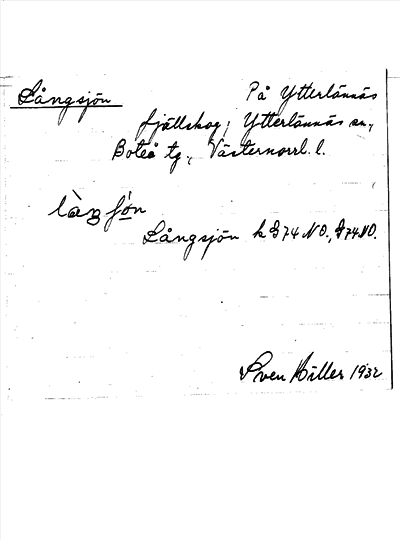 Långsjön På Ytterlännäs
fjällskog, Ytterlännäs sn,
Boteå tg, Västernorrl. l.
Långsjön k G74 NO., G74NO.
Sven Hiller 1932